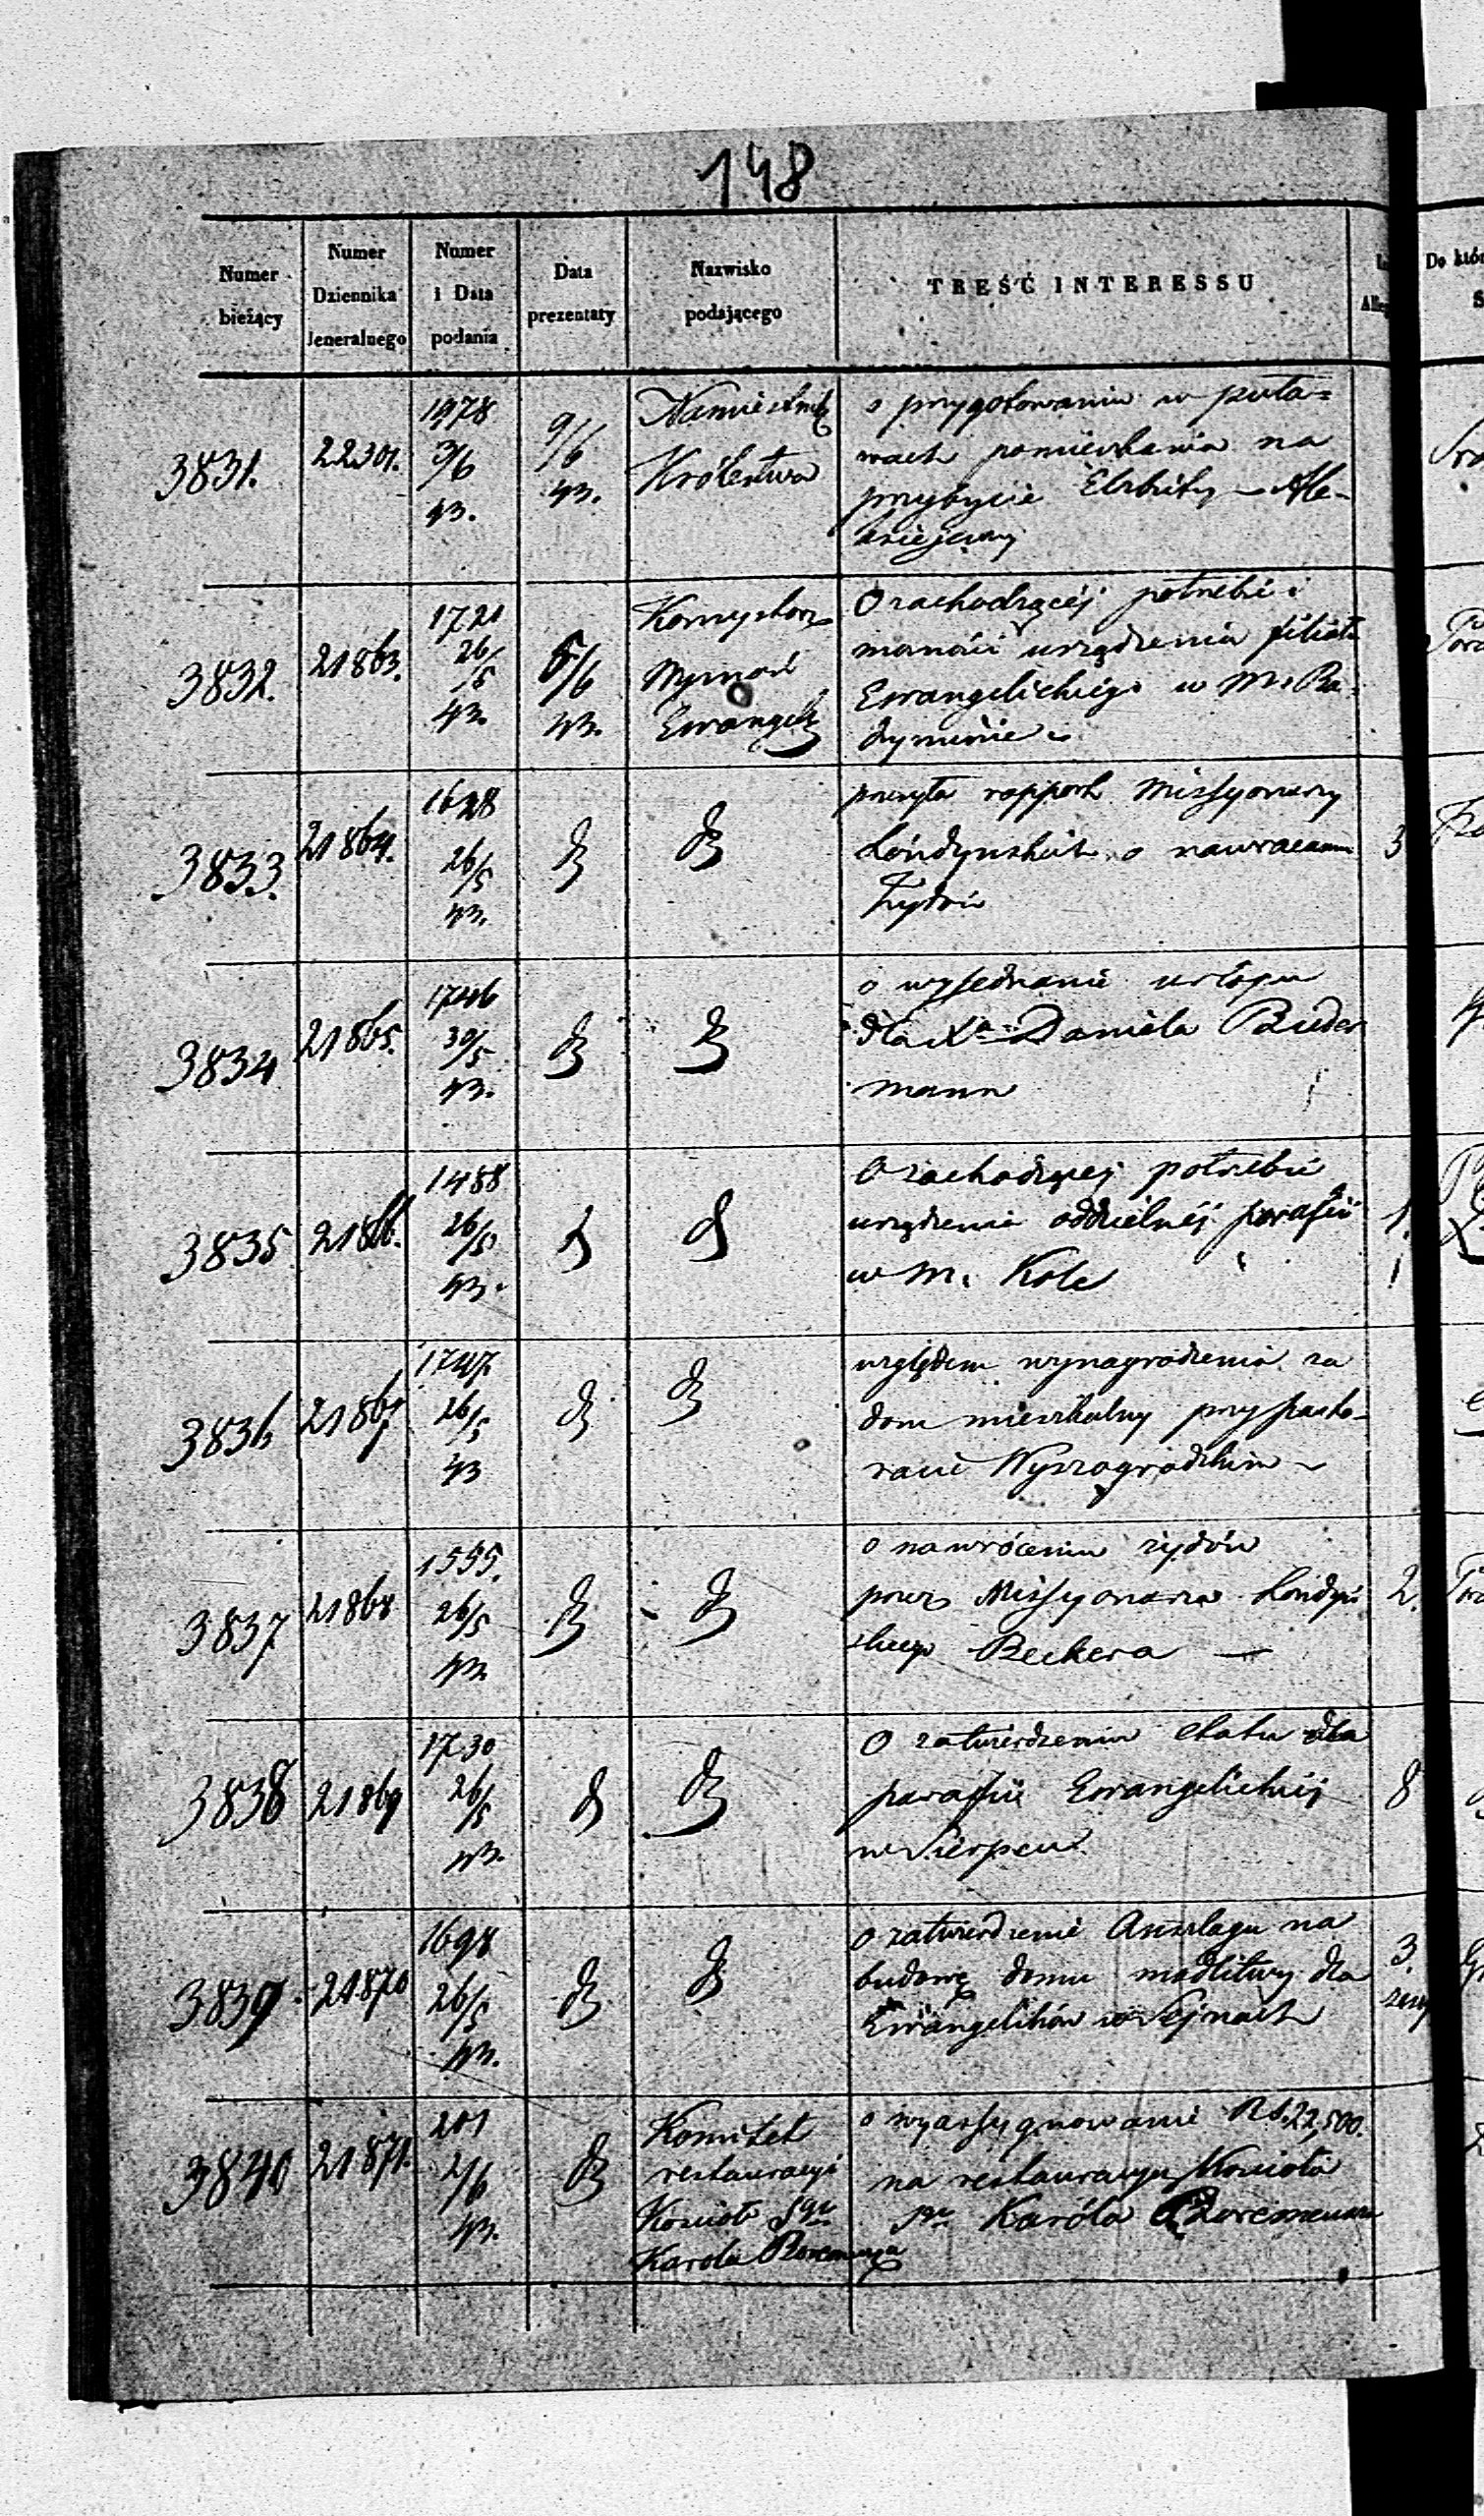 148
Numer bieżący
Numer Dziennika Jeneralnego
Numer i Data podania
Data prezentaty
Nazwisko podającego
TREŚĆ INTERESSU
3831. 22301. 1478 3/6 43. 9/6 43.
Namiestnik
Królestwa
o przygotowaniu w puła=
wach pomieszkania na
przybycie Elżbiety Ale-
xiejewny
3832. 21863. 1721 26/5 43. 5/6 43.
Konsystorz
Wyznań
Ewangel
O zachodzącéj potrzebie i
możności urządzenia filiału
Ewangelickiego w M. Ra-
dyminie
3833. 21864. 1628 26/5 43.
przesyła rapport Missyonarzy
Londyńskich o nawracaniu
Żydów
3
3834 21865. 1746 30/5 43.
o wyjednanie urlopu
dla Xa Daniela Bieder
mann
3835 21866. 1488 26/5 43.
O zachodzącej potrzebie
urządzenia oddzielnéj parafii
w M. Kole
1.
3836 21867 1747 26/5 43
względem wynagrodzenia za
dom mieszkalny przy pasto-
racie Wyszogrodzkim
3837 21868 1555. 26/5 43.
o nawróceniu żydów
przez Missyonarza Londyń
skiego Beckera —
2.
3838 21869 1730 26/5 43.
O zatwierdzeniu etatu dla
parafii Ewangelickiéj
w Sierpcu
8
3839. 21870 1698 26/5 43.
o zatwierdzenie Anszlagu na
budowę domu modlitwy dla
Ewangelików w Sejnach
3.
3840 21871. 201 2/6 43.
Komitet
restauracyi
Kościoł Sgo
Karola Boromeusza
o wyassygnowanie RS. 22,500.
na restauracyą Kościoła
Sgo Karóla Boromeusza